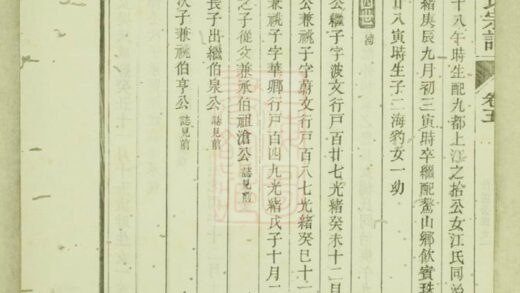 氏宗譜
卷五
十八午時生配九都上江之拾公女江氏同治
緒庚辰九月初三寅時卒繼配鰲山鄉飲賓珠
廿八寅時生子二海豹女一幼
四世
公繼子字波文行戸百廿七光緒癸未十二月
公兼祧子字蔚文行戸百八七光緒癸巳十一
公兼祧子字華卿行戸百四九光緒戊子十月二
之子從文兼承伯祖滄公誌見前
長子出繼伯泉公誌見前
次子兼祧伯亨公誌見前